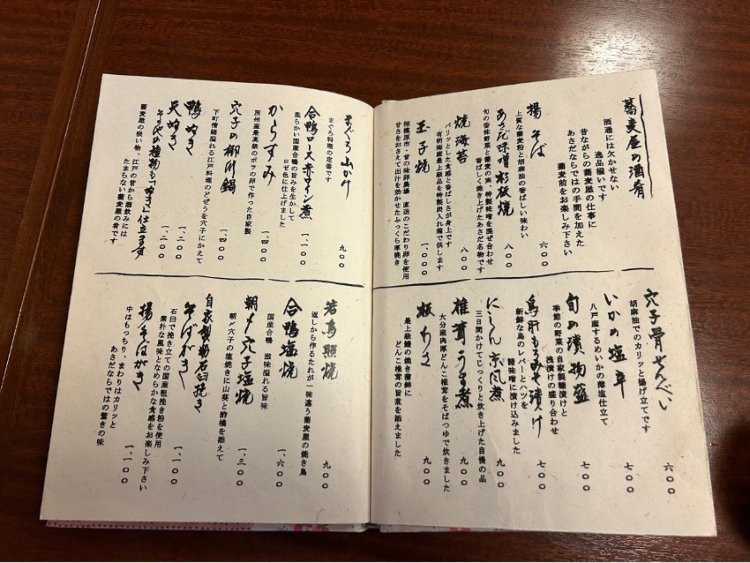 蕎麦屋の酒肴
酒通には欠かせない
逸品揃いです
昔ながらの蕎麦屋の仕事に
あさだならではの手間を加えた
蕎麦前をお楽しみ下さい
揚そば
上質な蕎麦粉と胡麻油の香ばしい味わい
六〇〇
あさだ味噌杉板焼
旬の香味野菜と蕎麦の実、特製味噌を混ぜ合わせ
香ばしく焼き上げたあさだ名物です
八〇〇
焼海苔
パリッとした食感と香ばしさが身上です
有明海産最上級品を特製炭入れ箱で供します
八〇〇
玉子焼
相模原市・昔の味卵農場 直送のこだわり卵を使用
甘さをおさえて出汁を効かせたふっくら厚焼き
一、〇〇〇
穴子骨せんべい
胡麻油でカリッと揚げ立てです
六〇〇
いかの塩辛
八戸産するめいかの薄塩仕立て
七〇〇
旬の漬物盛
季節の野菜の自家製糠漬けと
浅漬けの盛り合わせ
七〇〇
鳥肝もろみそ漬け
新鮮な鳥のレバーとハツを
醤味噌に漬け込みました
七〇〇
にしん京風煮
三日間かけてじっくりと炊き上げた自慢の品
九〇〇
椎茸うま煮
大分産肉厚どんこ椎茸をそばつゆで炊きます
九〇〇
板わさ
最上級鐘の焼き蒲鉾に
どんこ椎茸の旨煮を添えました
九〇〇
まぐろ山かけ
まぐろ料理の定番です
九〇〇
合鴨ロース赤ワイン煮
柔らかい国産合鴨の旨みを生かして
ロゼ色に仕上げました
一、一〇〇
からすみ
房州産最高級のボラの卵で作った自家製
一、四〇〇
穴子の柳川鍋
下町情緒溢れる江戸料理のどぜうを穴子にかえて
一、四〇〇
鴨ぬき
一、三〇〇
天ぬき
一、二〇〇
その他の種物も「ぬき」仕立てます
蕎麦屋の吸い物、江戸の昔から酒飲みには
たまらない蕎麦屋の肴です
若鳥照焼
返しから作るたれが一味違う蕎麦屋の焼き鳥
九〇〇
合鴨塩焼
国産合鴨 滋味溢れる旨味
一、六〇〇
朝〆穴子塩焼
朝〆穴子の塩焼きに山葵と酢橘を添えて
一、三〇〇
自家製粉石臼挽き
そばがき
石臼で挽き立ての国産粗挽き粉を使用
素朴な風味となめらかな食感をお楽しみ下さい
一、一〇〇
揚げそばがき
中はもっちり、まわりはカリッと
あさだならではの驚きの味
一、一〇〇